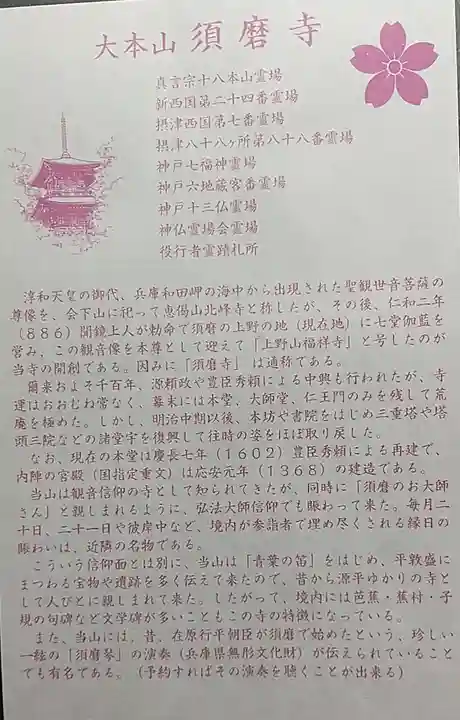 大本山 須磨寺
真言宗十八本山霊場
新西国第二十四番霊場
摂津西国第七番霊場
摂津八十八ヶ所第八十八番霊場
神戸七福神霊場
神戸六地蔵客番霊場
神戸十三仏霊場
神仏霊場会霊場
役行者霊蹟札所
淳和天皇の御代、兵庫和田岬の海中から出現された聖観世音菩薩の
尊像を、会下山に祀って恵偈山北峰寺と称したが、その後、仁和二年
（８８６）聞鏡上人が勅命で須磨の上野の地（現在地）に七堂伽藍を
営み、この観音像を本尊として迎えて「上野山福祥寺」と号したのが
当寺の開創である。因みに「須磨寺」は通称である。
爾来およそ千百年、源頼政や豊臣秀頼による中興も行われたが、寺
運はおおむね常なく、幕末には本堂、大師堂、仁王門のみを残して荒
廃を極めた。しかし、明治中期以後、本坊や書院をはじめ三重塔や塔
頭三院などの諸堂宇を復興して往時の姿をほぼ取り戻した。
なお、現在の本堂は慶長七年（１６０２）豊臣秀頼による再建で、
内陣の宮殿（国指定重文）は応安元年（１３６８）の建造である。
当山は観音信仰の寺として知られてきたが、同時に「須磨のお大師
さん」と親しまれるように、弘法大師信仰でも賑わって来た。毎月二
十日、二十一日や彼岸中など、境内が参詣者で埋め尽くされる縁日の
賑わいは、近隣の名物である。
こういう信仰面とは別に、当山は「青葉の笛」をはじめ、平敦盛に
まつわる宝物や遺跡を多く伝えて来たので、昔から源平ゆかりの寺と
して人びとに親しまれて来た。したがって、境内には芭蕉・蕪村・子
規の句碑など文学碑が多いこともこの寺の特徴になっている。
また、当山には、昔、在原行平朝臣が須磨で始めたという、珍しい
一絃の「須磨琴」の演奏（兵庫県無形文化財）が伝えられていること
でも有名である。（予約すればその演奏を聴くことが出来る）